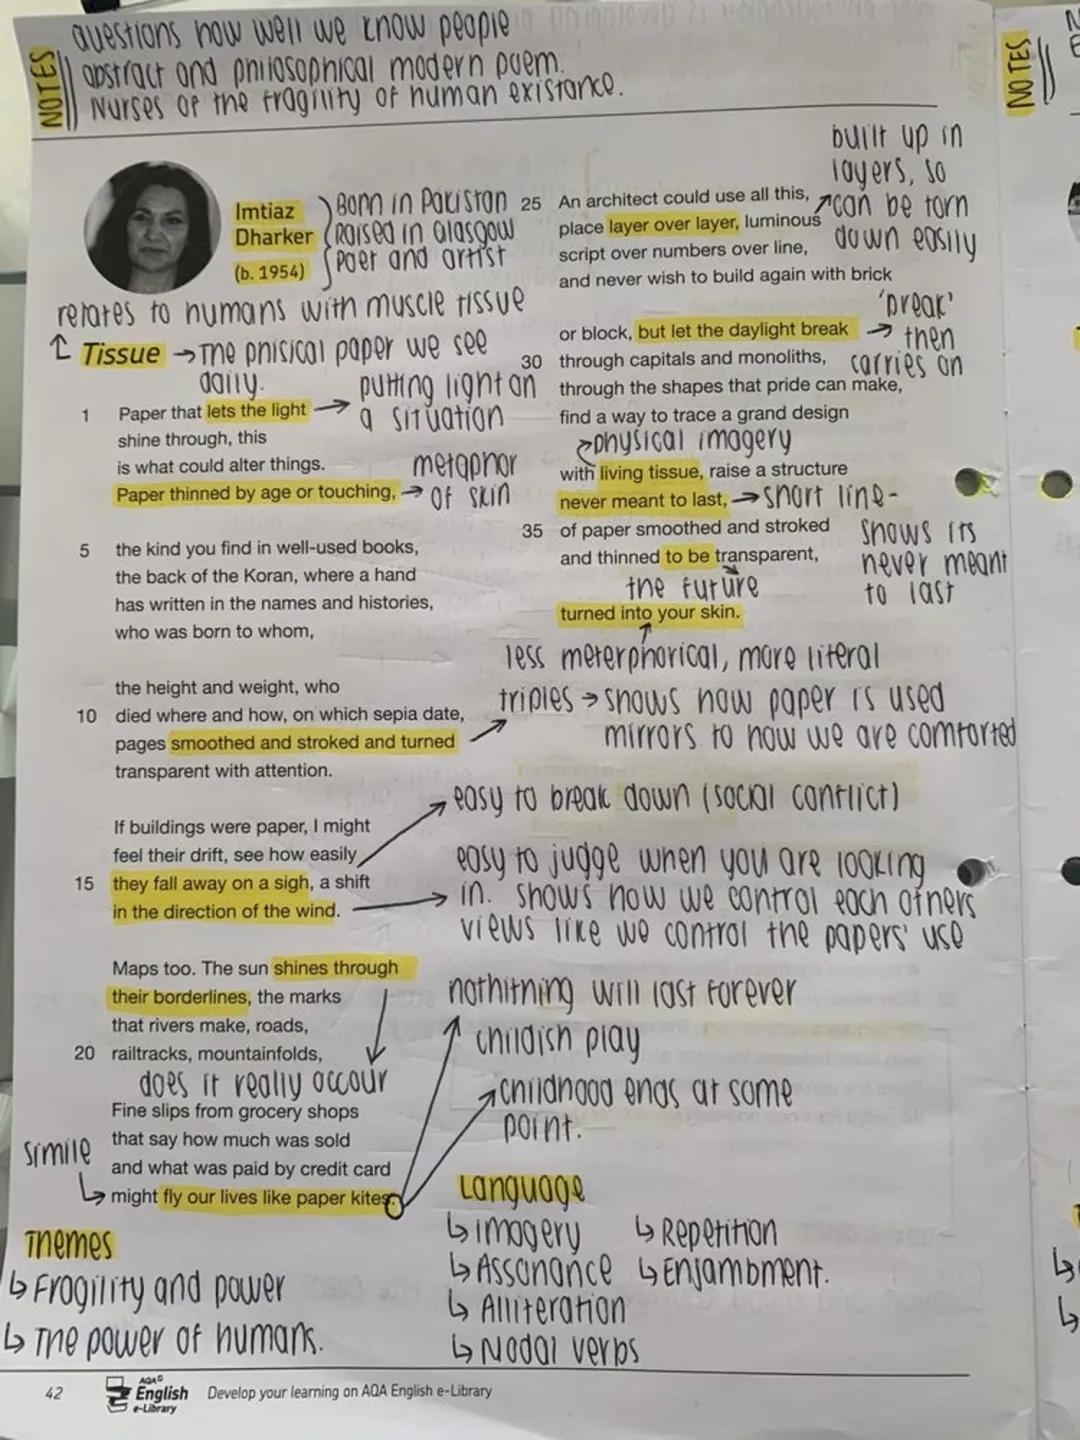 questions how well we know people
abstract and philosophical modern poem.
Nurses of the fragility of human existance.
NOTES
NOTES
Imtiaz
Dharker
(b. 1954)
Born in Pakistan
Raised in Glasgow
Poet and artist
relates to humans with muscle tissue
Tissue → The phisical paper we see
daily.
putting light on
a situation
1 Paper that lets the light
shine through, this
is what could alter things.
Paper thinned by age or touching,
metaphor
of skin
5 the kind you find in well-used books,
the back of the Koran, where a hand
has written in the names and histories,
who was born to whom,
the height and weight, who
10 died where and how, on which sepia date,
pages smoothed and stroked and turned
transparent with attention.
If buildings were paper, I might
feel their drift, see how easily
15 they fall away on a sigh, a shift
in the direction of the wind.
Maps too. The sun shines through
their borderlines, the marks
that rivers make, roads,
20 railtracks, mountainfolds,
does it really occour
Fine slips from grocery shops
that say how much was sold
and what was paid by credit card
might fly our lives like paper kites.
simile
built up in
layers, so
can be torn
down easily
25 An architect could use all this,
place layer over layer, luminous
script over numbers over line,
and never wish to build again with brick
'break'
then
carries on
or block, but let the daylight break
30 through capitals and monoliths,
through the shapes that pride can make,
find a way to trace a grand design
physical imagery
with living tissue, raise a structure
never meant to last, → short line-
shows its
never meant
to last
35 of paper smoothed and stroked
and thinned to be transparent,
the future
turned into your skin.
less meterphorical, more literal
triples → shows how paper is used
mirrors to how we are comforted
easy to break down (social conflict)
easy to judge when you are looking
in. shows how we control each others
views like we control the papers' use
nothitning will last forever
childish play
childhood ends at some
point.
Themes
↳ Fragility and power
↳ The power of humans.
Language
↳ imagery
↳ Assonance
↳ Alliteration
↳ Modal verbs
↳ Repetition
↳ Enjambment.
42
AQA
English
e-Library
Develop your learning on AQA English e-Library